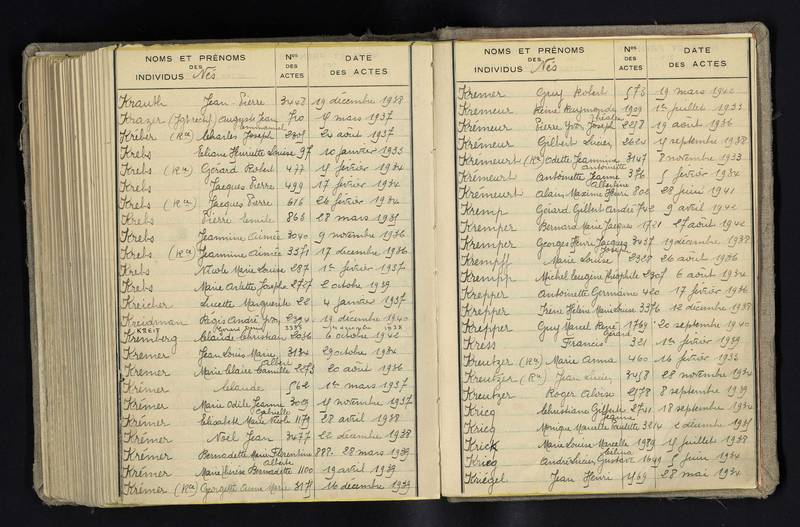 NOMS ET PRÉNOMS
DES
INDIVIDUS Nés
Nos
DES
ACTES
DATE
DES ACTES
Krauth Jean Pierre 3448 19 décembre 1938
Krazer Auguste Jean 710 mars 1937
Kréber (Rn) Charles Joseph août 1937
Krebs Eliane Henriette Louise 97 10 janvier 1933
Krebs (Rn) Gérard Robert 477 février 1934
Krebs Jacques Pierre 499 17 février 1934
Krebs (Rn) Jacques Pierre 616 26 février 1934
Krebs Pierre Emile 866 28 mars 1931
Krebs Jeannine Aimée 3040 9 novembre 1936
Krebs (Rn) Jeannine Aimée 3371 17 décembre 1936
Krebs Nicole Marie Louise 287 1er février 1937
Krebs Marie Arlette Josèphe 2727 2 octobre 1939
Kreicher Lucette Marguerite 22 4 janvier 1937
Kreidman Régis André Yvon 19 décembre 1940
KREIT 1938
Kremberg Claude Christian 2036 6 octobre 1942
Kremer Jean Louis Marie 3134 29 octobre 1934
Albert
Kremer Marie Claire Camille 2273 20 août 1936
Krémer Claude 562 1er mars 1937
Krémer Marie Odile Jeanne 3029 novembre 1937
Gabrielle
Krémer Elisabeth Marie Nicole 1179 28 avril 1938
Krémer Noël Jean 3477 22 décembre 1938
Krémer Bernadette Marie Florentine 882 28 mars 1939
Alberte
Krémer Marie Thérèse Bernadette 1100 19 avril 1939
Krémer (Rn) Georgette Anne Marie 16 décembre 1939
NOMS ET PRÉNOMS
DES
INDIVIDUS Nés
Nos
DES
ACTES
DATE
DES ACTES
Kremer Guy Robert 573 19 mars 1942
Kremeur Reine Raymonde 1909 1er juillet 1933
Kremeur Pierre Yvon Joseph 2258 19 août 1936
Krémeur Gilbert Lucien 2624 septembre 1938
Kremeurt (Rn) Odette Jeannine 3147 8 novembre 1933
Antoinette
Krémeurt Antoinette Jeanne 376 5 février 1934
Albertine
Krémeurt Alain Maxime Henri 802 28 juin 1941
Kremp Gérard Gilbert André 742 9 avril 1942
Kremper Bernard Marie Jacques 1721 27 août 1942
Kremper Georges Henri Jacques 3437 19 décembre 1938
Joseph
Krempff Marie Louise 2328 26 août 1936
Krempp Michel Eugène Théophile 2307 6 août 1934
Krepper Antoinette Germaine 420 17 février 1936
Krepper Irène Hélène Marie Louise 3376 12 décembre 1938
Krepper Guy Marcel René 1769 20 septembre 1940
Gérard
Kress Francis 321 1er février 1939
Kreutzer (Rn) Marie Anna 460 16 février 1933
Kreutzer (Rn) Jean Lucien 3258 28 novembre 1934
Kreutzer Roger Aloïse 2578 8 septembre 1939
Krieg Christiane Gilberte 2741 18 septembre 1934
Jeanne
Krieg Monique Marcelle Paulette 3214 2 décembre 1931
Krick Marie Louise Marcelle 1989 juillet 1938
Célina
Krieg André Lucien Gustave 1649 5 juin 1934
Kriegel Jean Henri 28 mai 1934